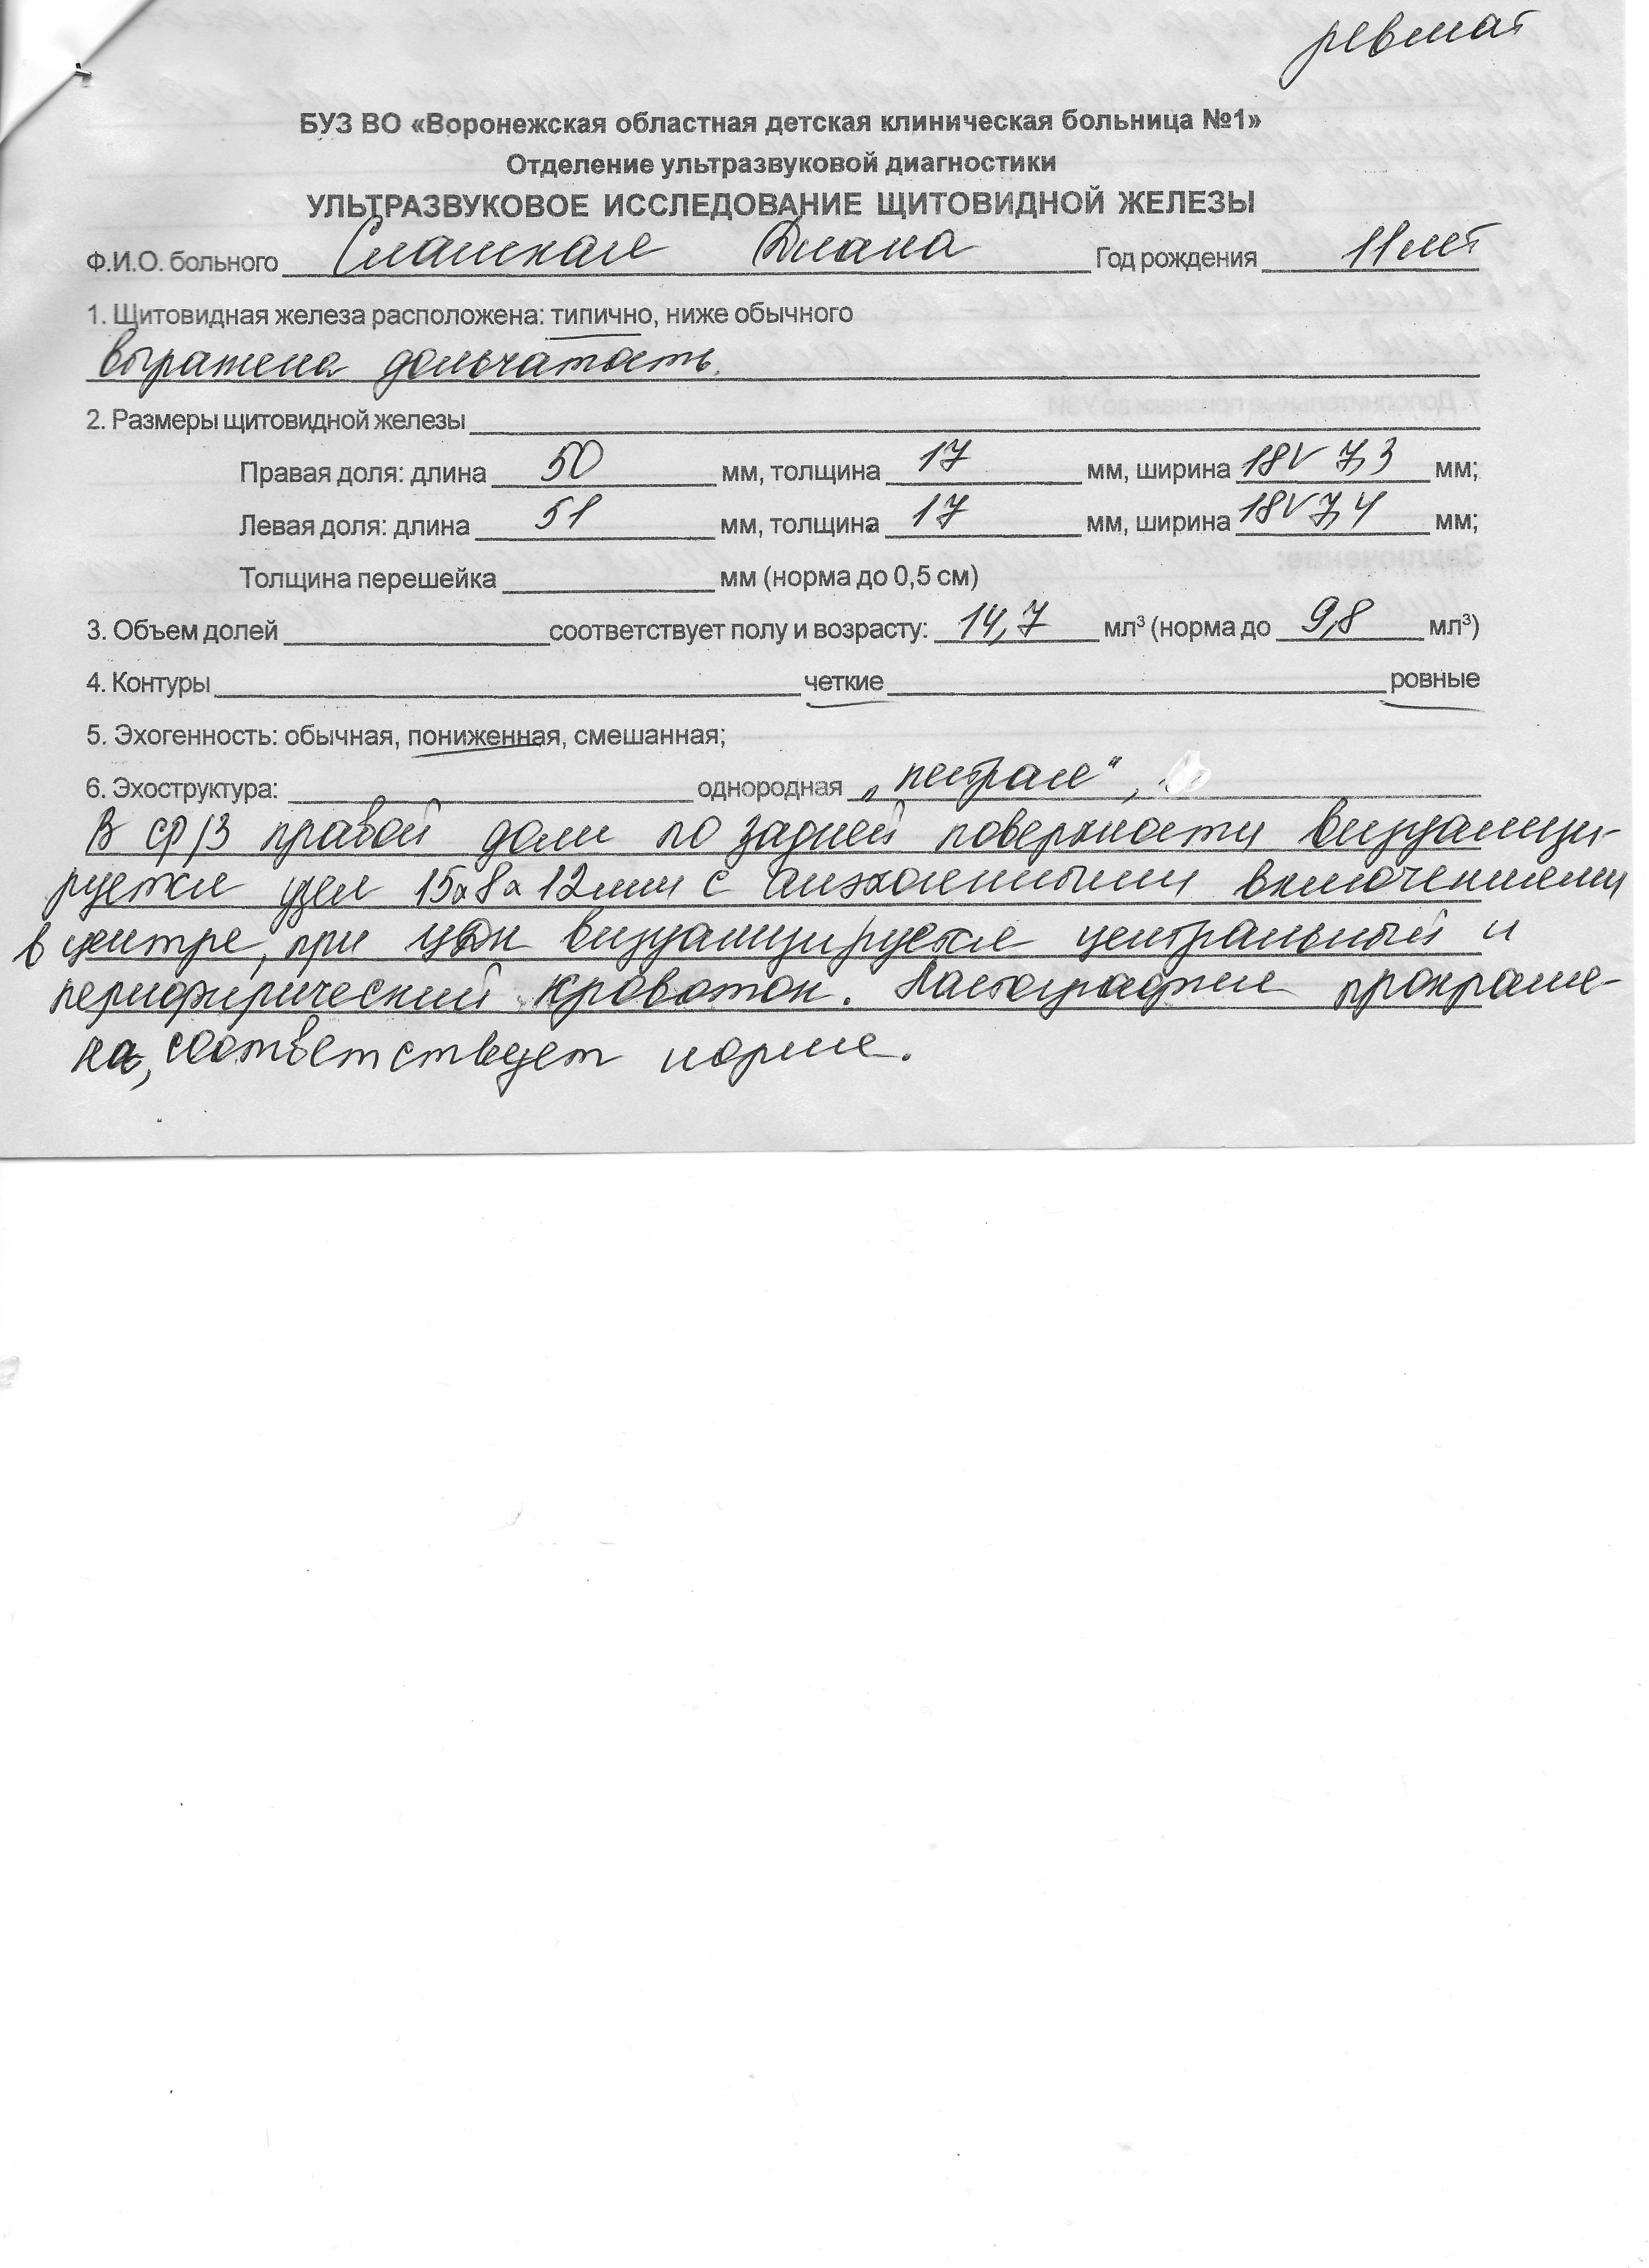 ревмат
БУЗ ВО «Воронежская областная детская клиническая больница №1»
Отделение ультразвуковой диагностики
УЛЬТРАЗВУКОВОЕ ИССЛЕДОВАНИЕ ЩИТОВИДНОЙ ЖЕЛЕЗЫ
Ф.И.О. больного Диана Год рождения 11 лет
1. Щитовидная железа расположена: типично, ниже обычного
выражена дольчатость.
2. Размеры щитовидной железы
Правая доля: длина 50 мм, толщина 17 мм, ширина 18 V 7,3 мм;
Левая доля: длина 51 мм, толщина 17 мм, ширина 18 V 7,4 мм;
Толщина перешейка мм (норма до 0,5 см)
3. Объем долей соответствует полу и возрасту: 14,7 мл³ (норма до 9,8 мл³)
4. Контуры четкие ровные
5. Эхогенность: обычная, пониженная, смешанная;
6. Эхоструктура: однородная „пестрая",
В ср/3 правой доли по задней поверхности визуализи-
руется узел 15х8х12мм с анэхогенными включениями
в центре, при ЦДК визуализируется центральный и
периферический кровоток. прокраше-
на, соответствует норме.